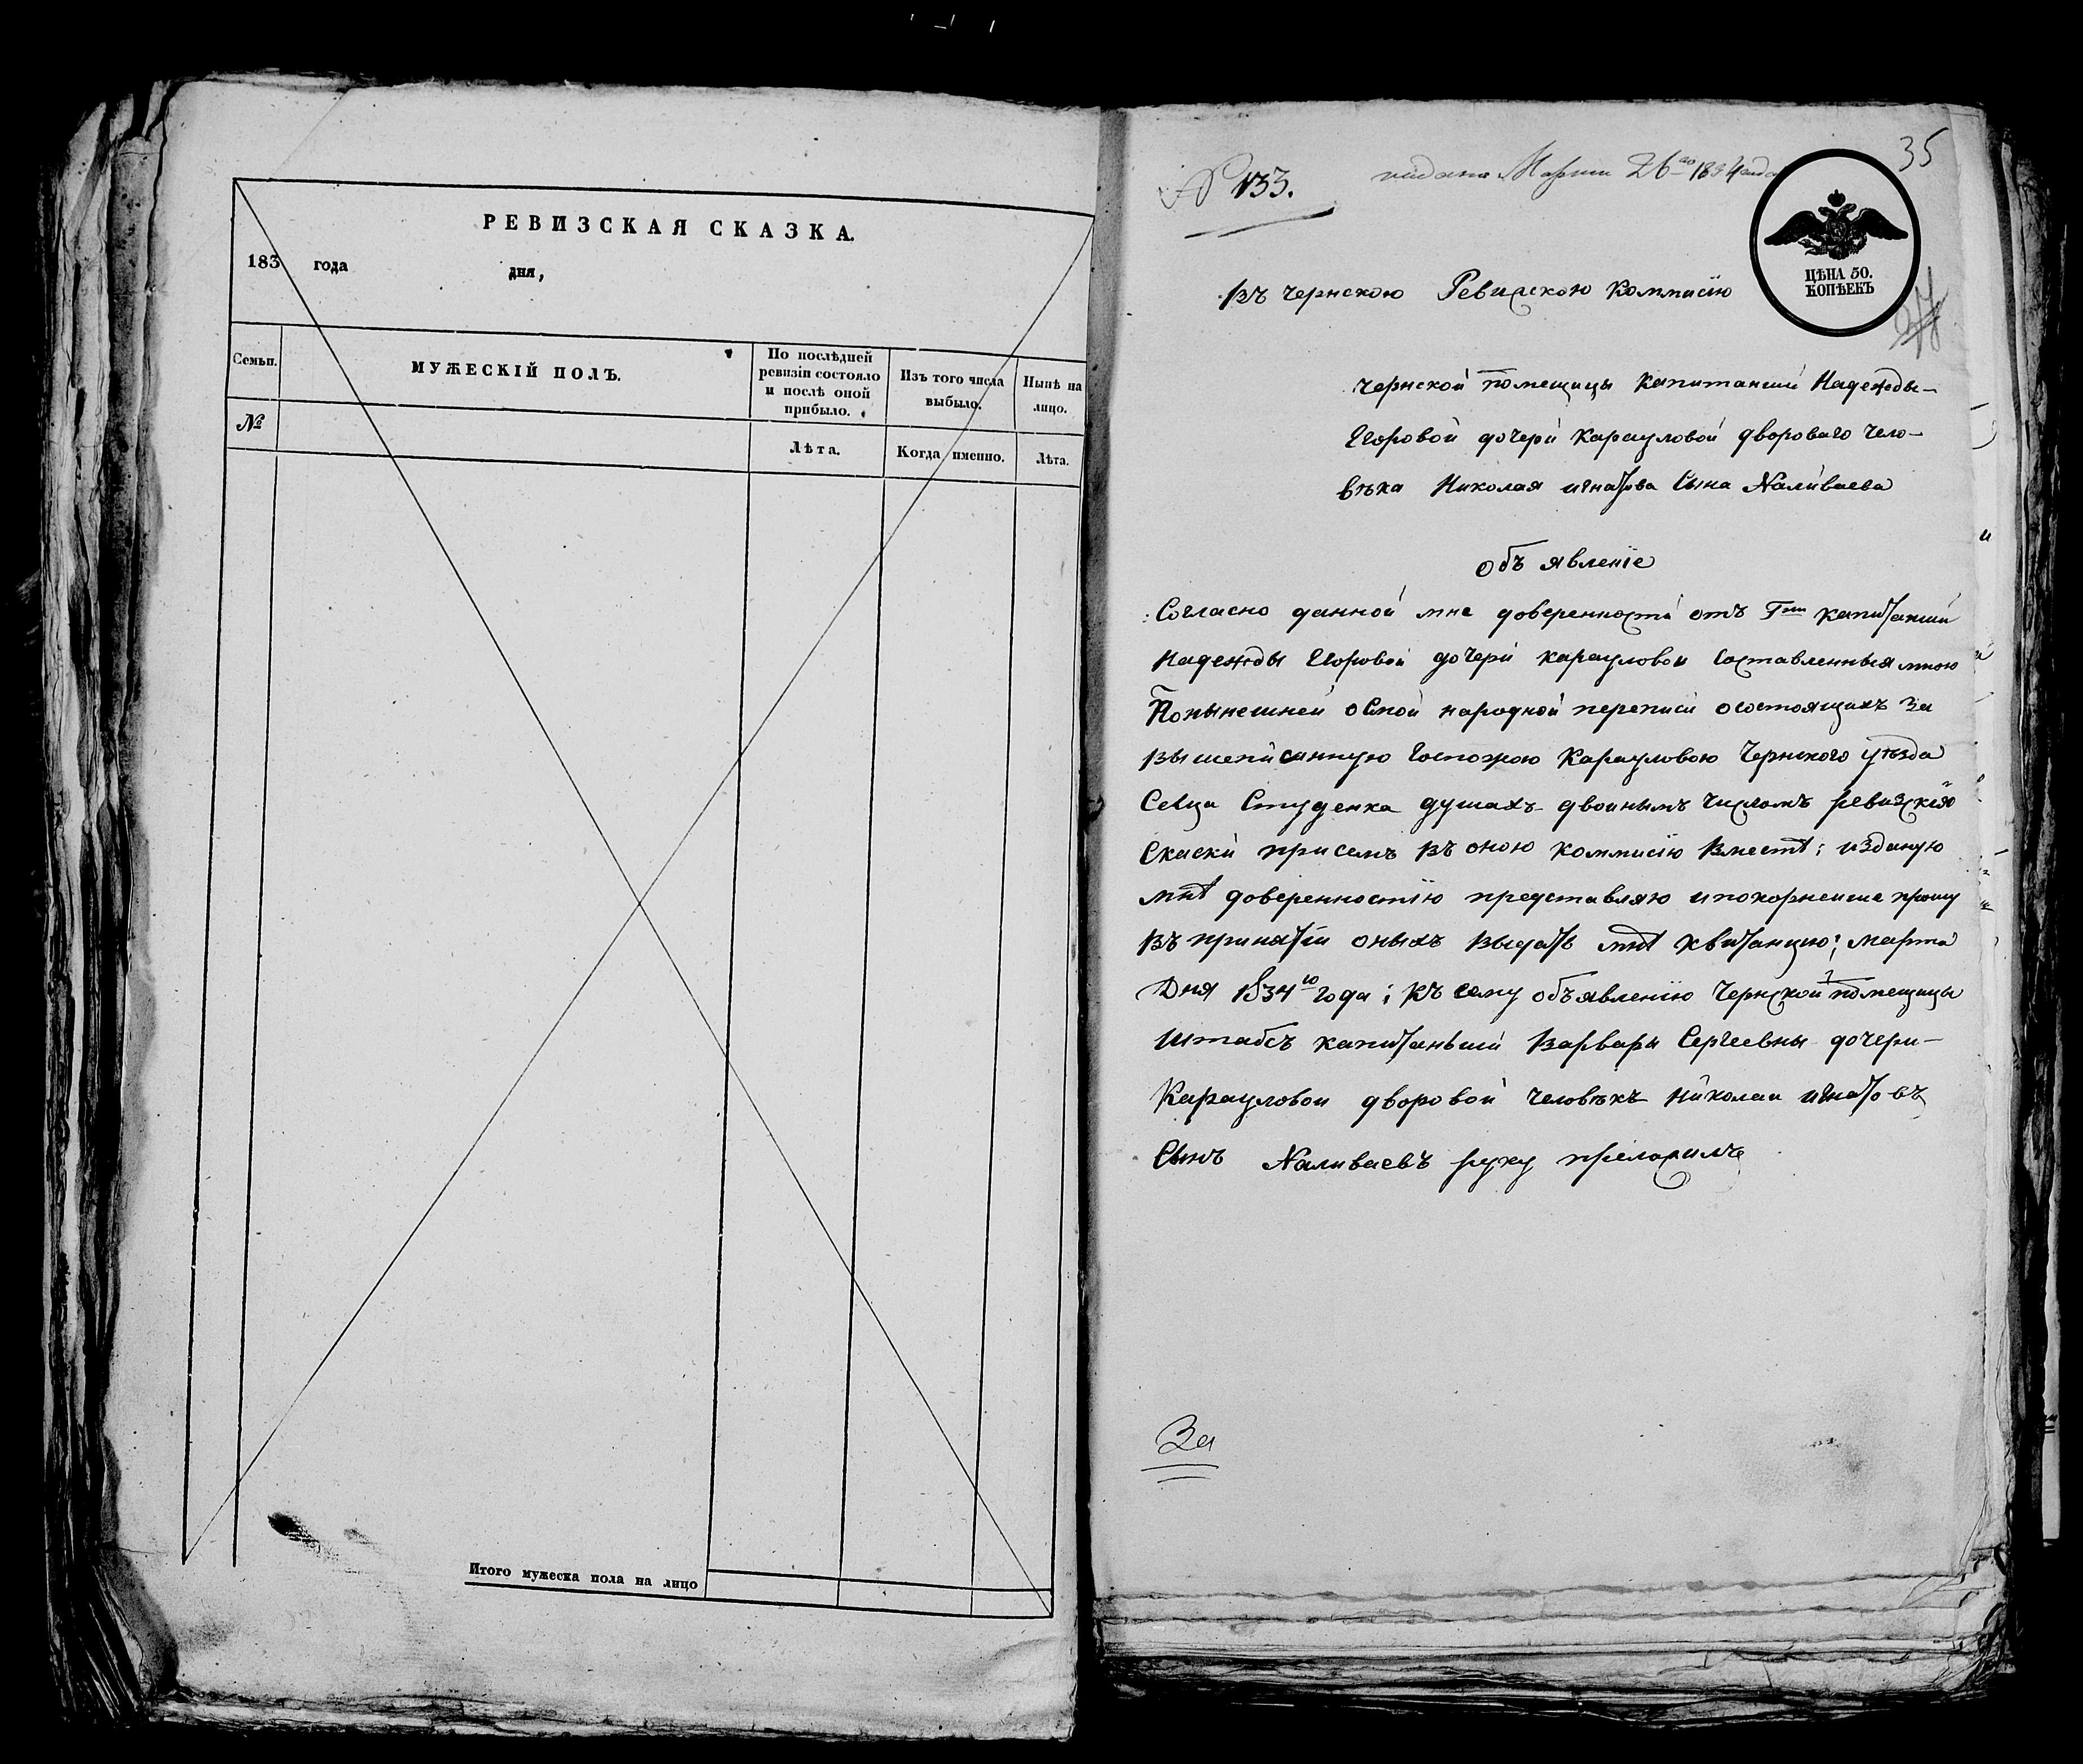 РЕВИЗСКАЯ СКАЗКА.
183 года дня,
Семьи.
МУЖЕСКІЙ ПОЛЪ.
По послѣдней
ревизіи состояло
и послѣ оной
прибыло.
Изъ того числа
выбыло.
Нынѣ на
лицо.
№
Лѣта.
Когда именно.
Лѣта.
Итого мужеска пола на лицо
35
№ 133.
Марта 26го 1834 года
ЦѢНА 50.
КОПѢЕКЪ
Въ чернскою Ревизскою Коммисію
чернской помещицы капитанши Надежды
Егоровой дочери Карауловой двороваго чело-
века Николая игнатова Сына Наливаева
объ явленіе
Согласно данной мне доверенности отъ Гжи капитанши
Надежды Егоровой дочери карауловои Составленныя мною
Понынешней осмой народной переписи осостоящихъ За
вышеписанную Госпожою Карауловою Чернского уезда
Сельца Студенка душахъ двоинымъ числомъ ревизскія
Скаски присемъ въ оною коммисію вместѣ; изданую
мнѣ доверенностію представляю ипокорнеише прошу
въ принятіи оныхъ выдать мнѣ квитанцию; марта
Дня 1834го года; къ сему объявленію Чернской помещицы
Штабсъ капитаньши Варвары Сергеевны дочери
Карауловои дворовой человекъ Николаи игнатовъ
Сынъ Наливаевъ руку приложилъ
За